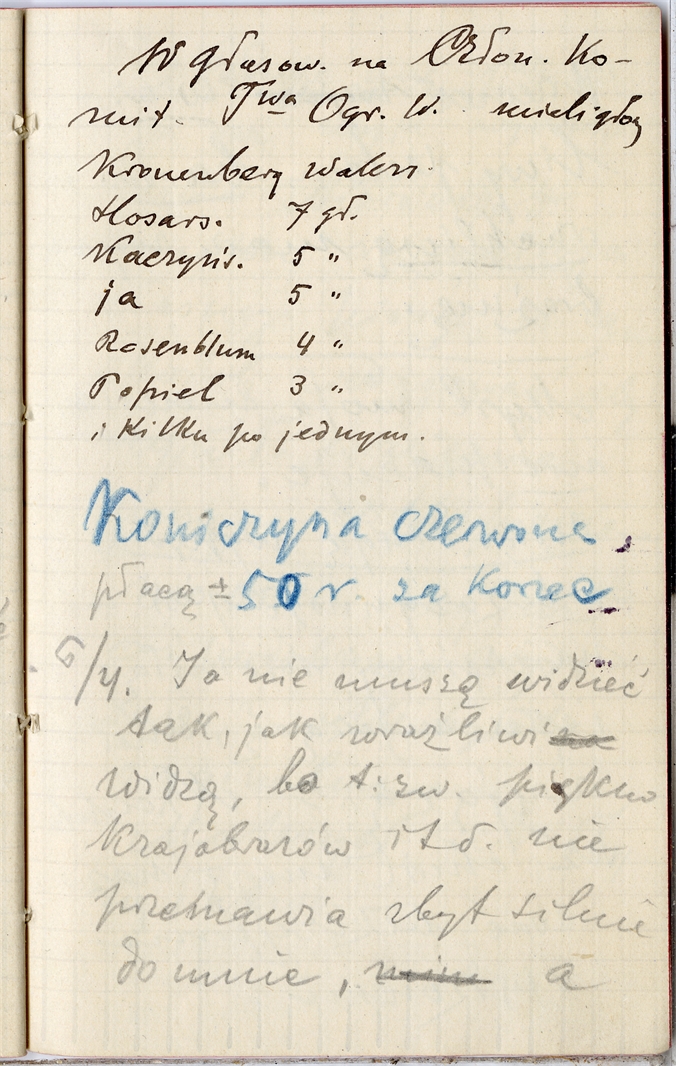 W głosow. na Człon. Ko-
mit. Twa Ogr. W. mieli głosy
Kronenberg
Hosars. 7 gł.
Kaczyńs. 5 "
ja 5 "
Rosenblum 4 "
Popiel 3 "
i kilku po jednym.
Koniczyna czerwona
płacą ± 50 r. za Korzec
6/4. Ja nie muszą widzieć
tak, jak wrażliwi
widzą, bo t. zw. piękno
Krajobrazów itd. nie
przemawia zbyt silnie
do mnie, a